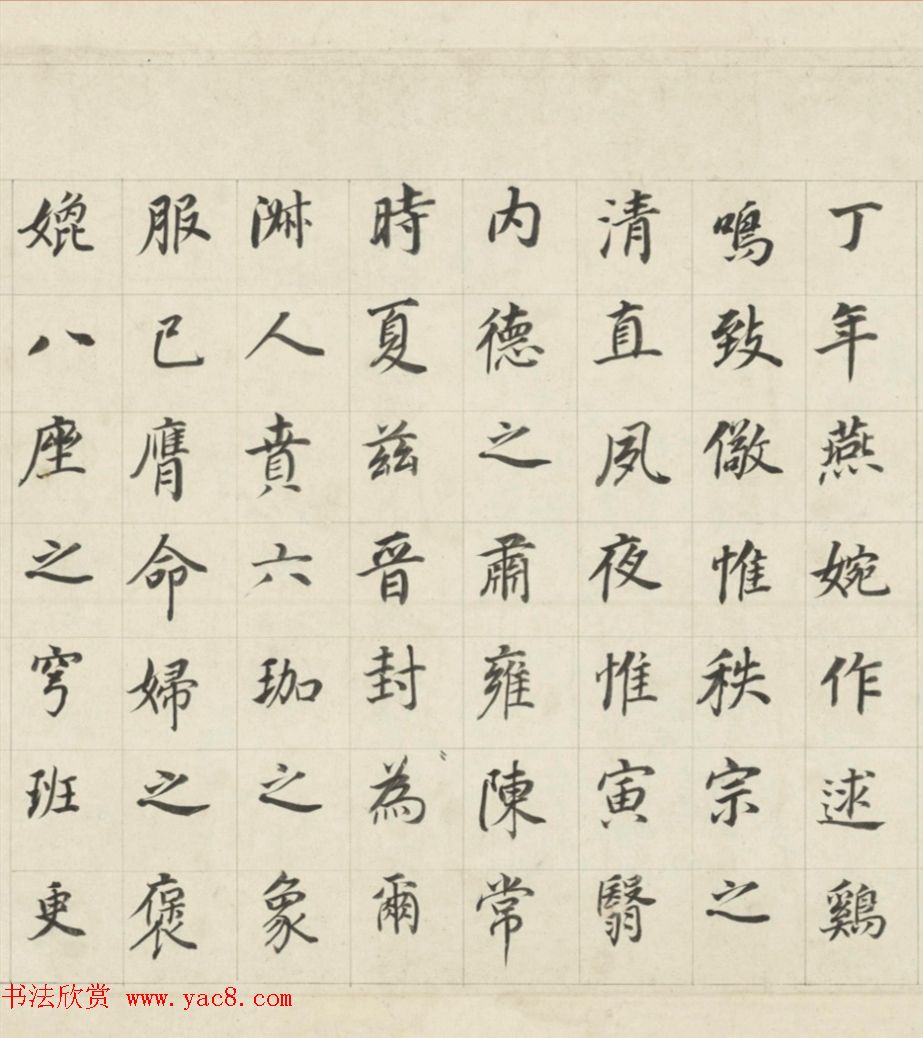 丁年燕婉作逑鷄
鳴致儆惟秩宗之
清直夙夜惟寅翳
内德之肅雍陳常
時夏茲晉封為爾
淑人賁六珈之象
服已膺命婦之褒
媲八座之穹班更
书法欣赏 www.yac8.com